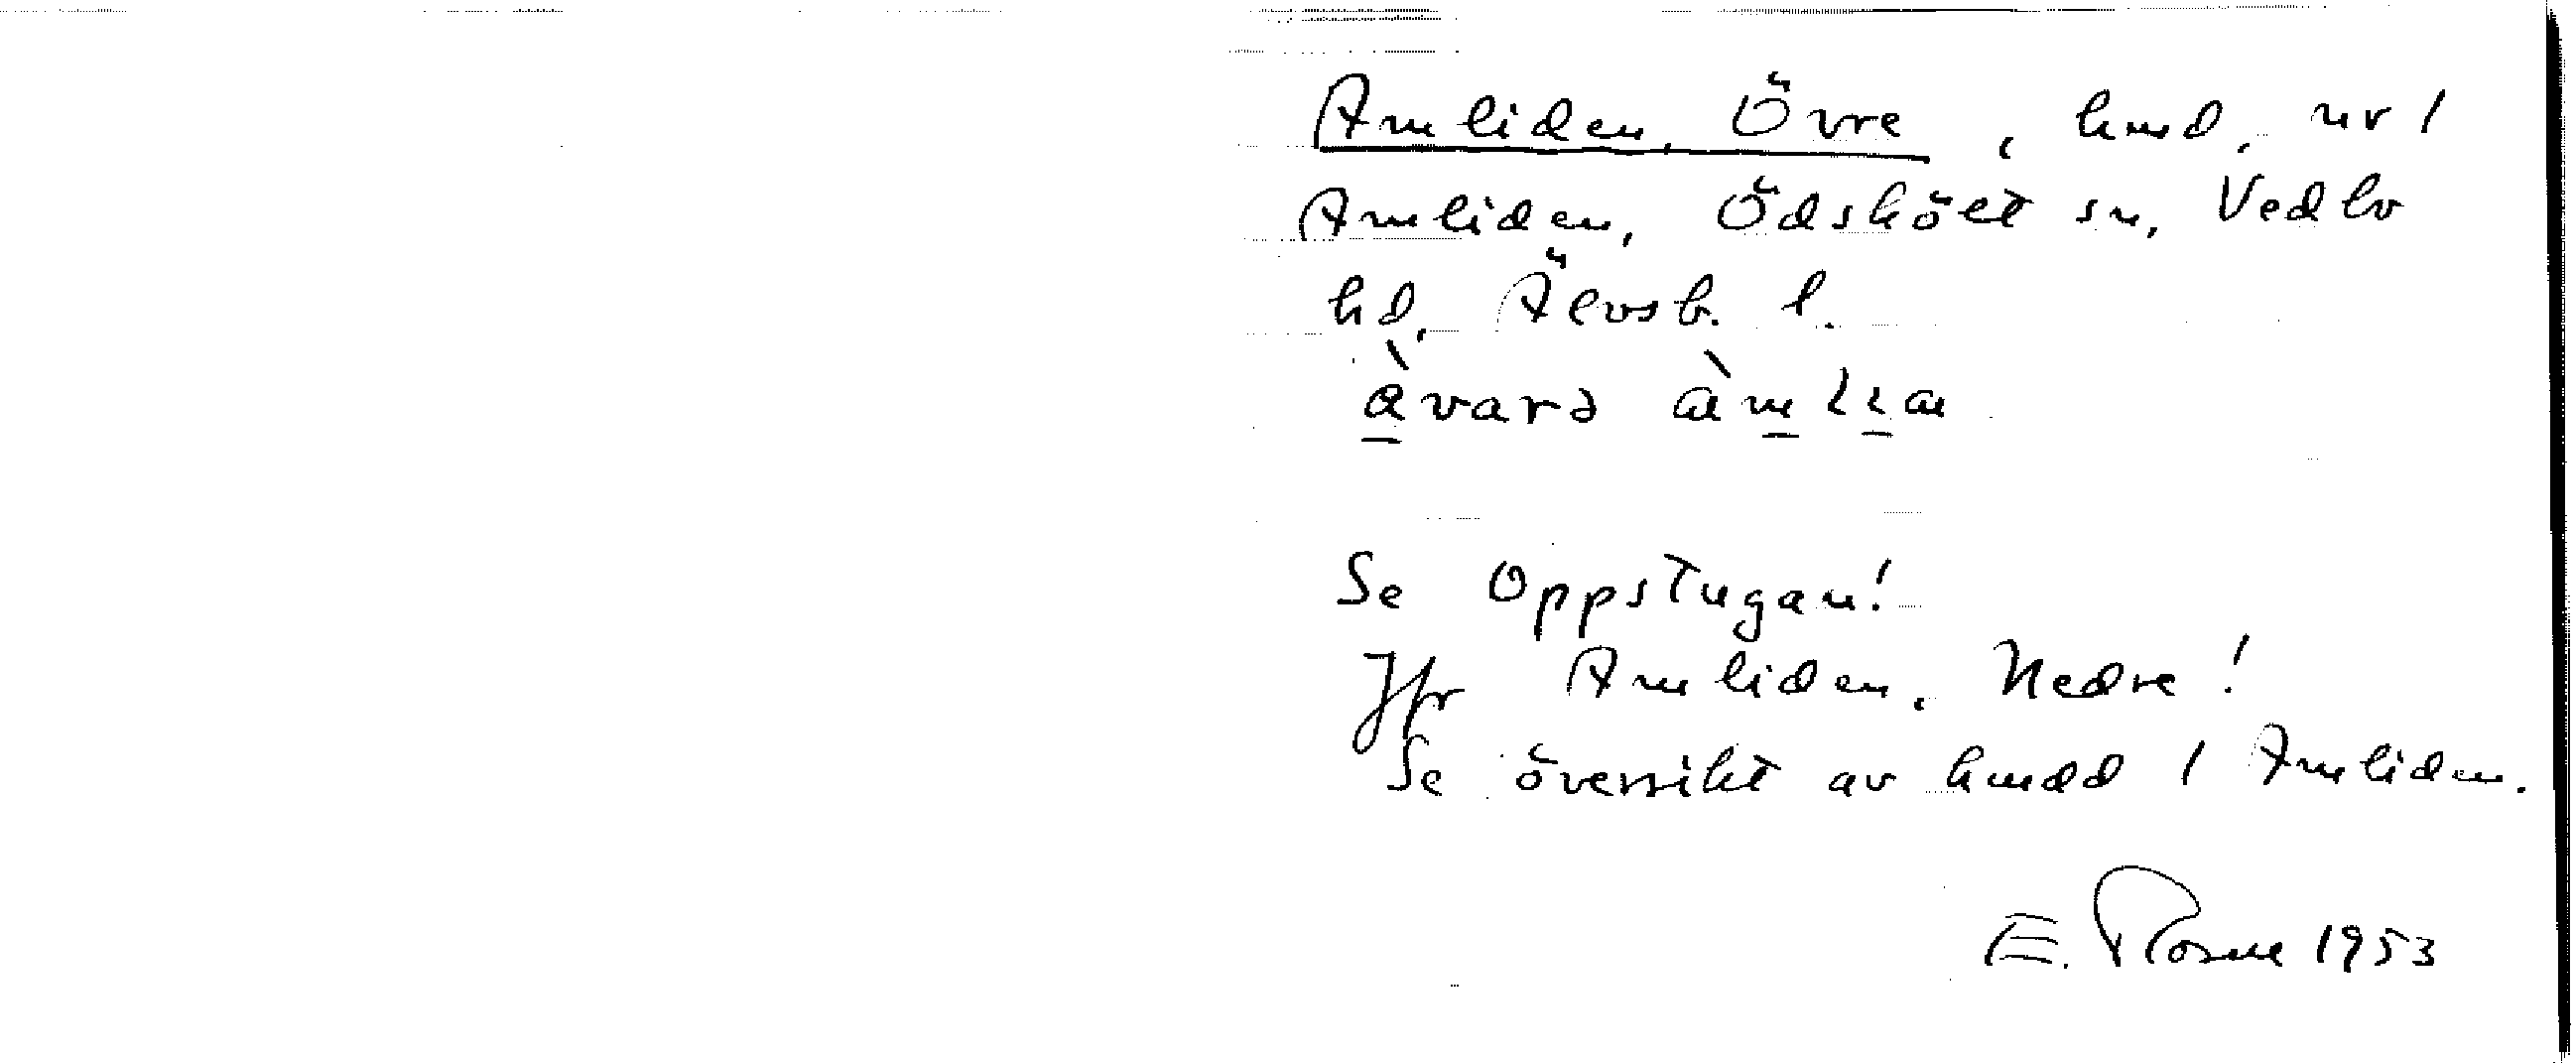 Amliden, Övre, hmd, nr 1
Amliden, Ödskölt sn, Vedbo
hd, Älvsb. l.
Se Oppstugan!
Jfr Amliden, Nedre!
Se översikt av hmdd 1 Amliden.
E. Rosne 1953